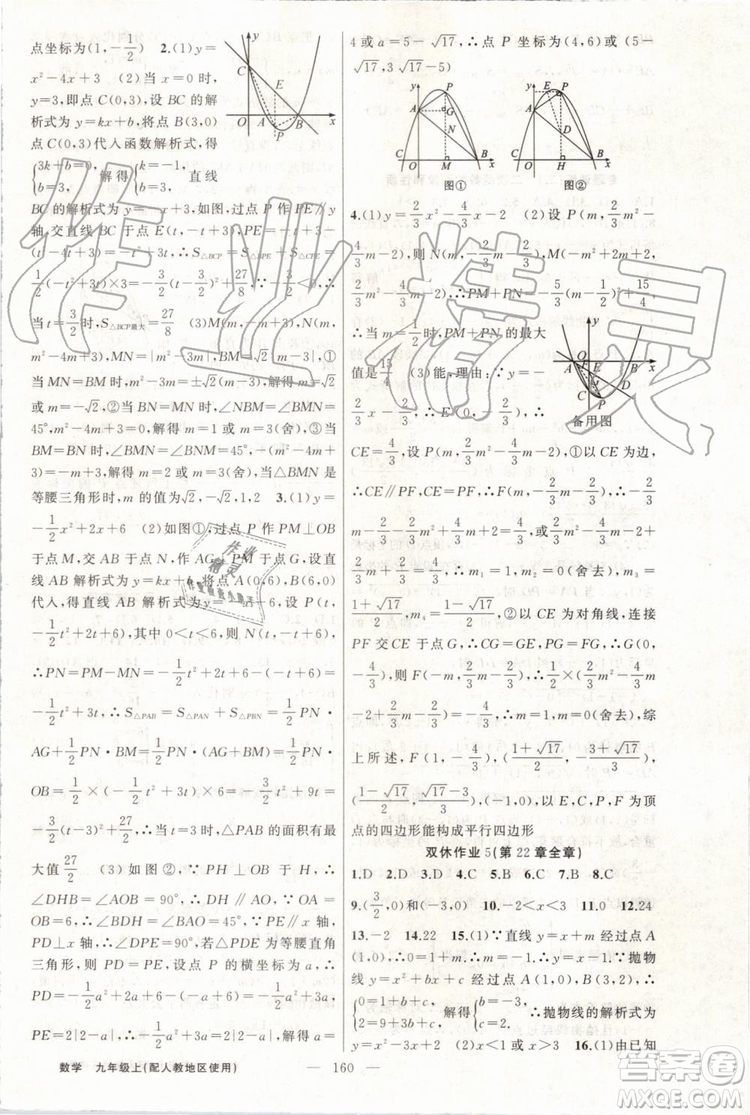 点坐标为(1,-1/2)　2.(1)y=
x²-4x+3　(2)当x=0时,
y=3,即点C(0,3),设BC的解
析式为y=kx+b,将点B(3,0)
点C(0,3)代入函数解析式,得
{3k+b=0, b=3, 解得{k=-1, b=3, 直线
BC的解析式为y=-x+3,如图,过点P作PE∥y
轴,交直线BC于点E(t,-t+3),PE=-t+3-
(t²-4t+3)=-t²+3t,∴S△BCP=S△BPE+S△CPE=
1/2(-t²+3t)×3=-3/2(t-3/2)²+27/8,∵-3/2<0,∴
当t=3/2时,S△BCP最大=27/8　(3)M(m,-m+3),N(m,
m²-4m+3),MN=|m²-3m|,BM=√2|m-3|,①
当MN=BM时,m²-3m=±√2(m-3),解得m=√2
或m=-√2,②当BN=MN时,∠NBM=∠BMN=
45°,m²-4m+3=0,解得m=1或m=3(舍),③当
BM=BN时,∠BMN=∠BNM=45°,-(m²-4m+
3)=-m+3,解得m=2或m=3(舍),当△BMN是
等腰三角形时,m的值为√2,-√2,1,2　3.(1)y=
-1/2x²+2x+6　(2)如图①,过点P作PM⊥OB
于点M,交AB于点N,作AG⊥PM于点G,设直线
AB解析式为y=kx+b,将点A(0,6),B(6,0)
代入,得直线AB解析式为y=-x+6,设P(t,
-1/2t²+2t+6),其中0<t<6,则N(t,-t+6),
∴PN=PM-MN=-1/2t²+2t+6-(-t+6)=
-1/2t²+3t,∴S△PAB=S△PAN+S△PBN=1/2PN·
AG+1/2PN·BM=1/2PN·(AG+BM)=1/2PN·
OB=1/2×(-1/2t²+3t)×6=-3/2t²+9t=
-3/2(t-3)²+27/2,∴当t=3时,△PAB的面积有最
大值27/2　(3)如图②,∵PH⊥OB于H,
∴∠DHB=∠AOB=90°,∴DH∥AO,∵OA=
OB=6,∴∠BDH=∠BAO=45°,∵PE∥x轴,
PD⊥x轴,∴∠DPE=90°,若△PDE为等腰直角三
角形,则PD=PE,设点P的横坐标为a,∴
PD=-1/2a²+2a+6-(-a+6)=-1/2a²+3a,
PE=2|2-a|,∴-1/2a²+3a=2|2-a|,解得a=
4或a=5-√17,∴点P坐标为(4,6)或(5-
√17,3√17-5)
y
P
A
G
N
C O M B x
图①
y
E P
A
D
C O H B x
图②
4.(1)y=2/3x²-4/3x-2　(2)设P(m,2/3m²-
4/3m-2),则N(m,2/3m-2),M(-m²+2m+2,
2/3m²-4/3m-2),∴PM+PN=-5/3(m-3/2)²+15/4,
∴当m=3/2时,PM+PN的最大
值是15/4　(3)能,理由:∵y=-
2/3x-2/3,∴E(0,-2/3),∴
备用图
CE=4/3,设P(m,2/3m²-4/3m-2),①以CE为边,
∴CE∥PF,CE=PF,∴F(m,-2/3m-2/3),∴-2/3
m-2/3-2/3m²+4/3m+2=4/3,或2/3m²-4/3m-2+
2/3m+2/3=4/3,∴m₁=1,m₂=0(舍去),m₃=
(1+√17)/2,m₄=(1-√17)/2,②以CE为对角线,连接
PF交CE于点G,∴CG=GE,PG=FG,∴G(0,
-4/3),则F(-m,2/3m-2/3),∴1/2×(2/3m²-4/3
m-2+2/3m-2/3)=-4/3,∴m=1,m=0(舍去),综
上所述,F(1,-4/3),((1+√17)/2,-(3+√17)/3),
((1-√17)/2,(√17-3)/3),(-1,0),以C,E,P,F为顶
点的四边形能构成平行四边形
双休作业5(第22章全章)
1.D　2.C　3.D　4.B　5.B　6.D　7.B　8.C
9.(3/2,0)和(-3/2,0)　10.-2<x<3　11.0　12.24
13.-2　14.22　15.(1)∵直线y=x+m经过点A
(1,0),∴0=1+m,∴m=-1,∴y=x-1,∵抛物
线y=x²+bx+c经过点A(1,0),B(3,2),∴
{0=1+b+c, 2=9+3b+c, 解得{b=-3, c=2, ∴抛物线的解析式为
y=x²-3x+2　(2)x<1或x>3　16.(1)由已知
数学　九年级上(配人教地区使用)　— 160 —
作业精灵
答案